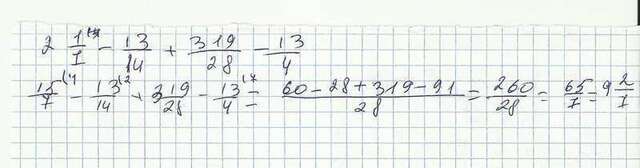 2 1/7 - 13/14 + 319/28 - 13/4
15/7 - 13/14 + 319/28 - 13/4 = 60 - 28 + 319 - 91/28 = 260/28 = 65/7 = 9 2/7